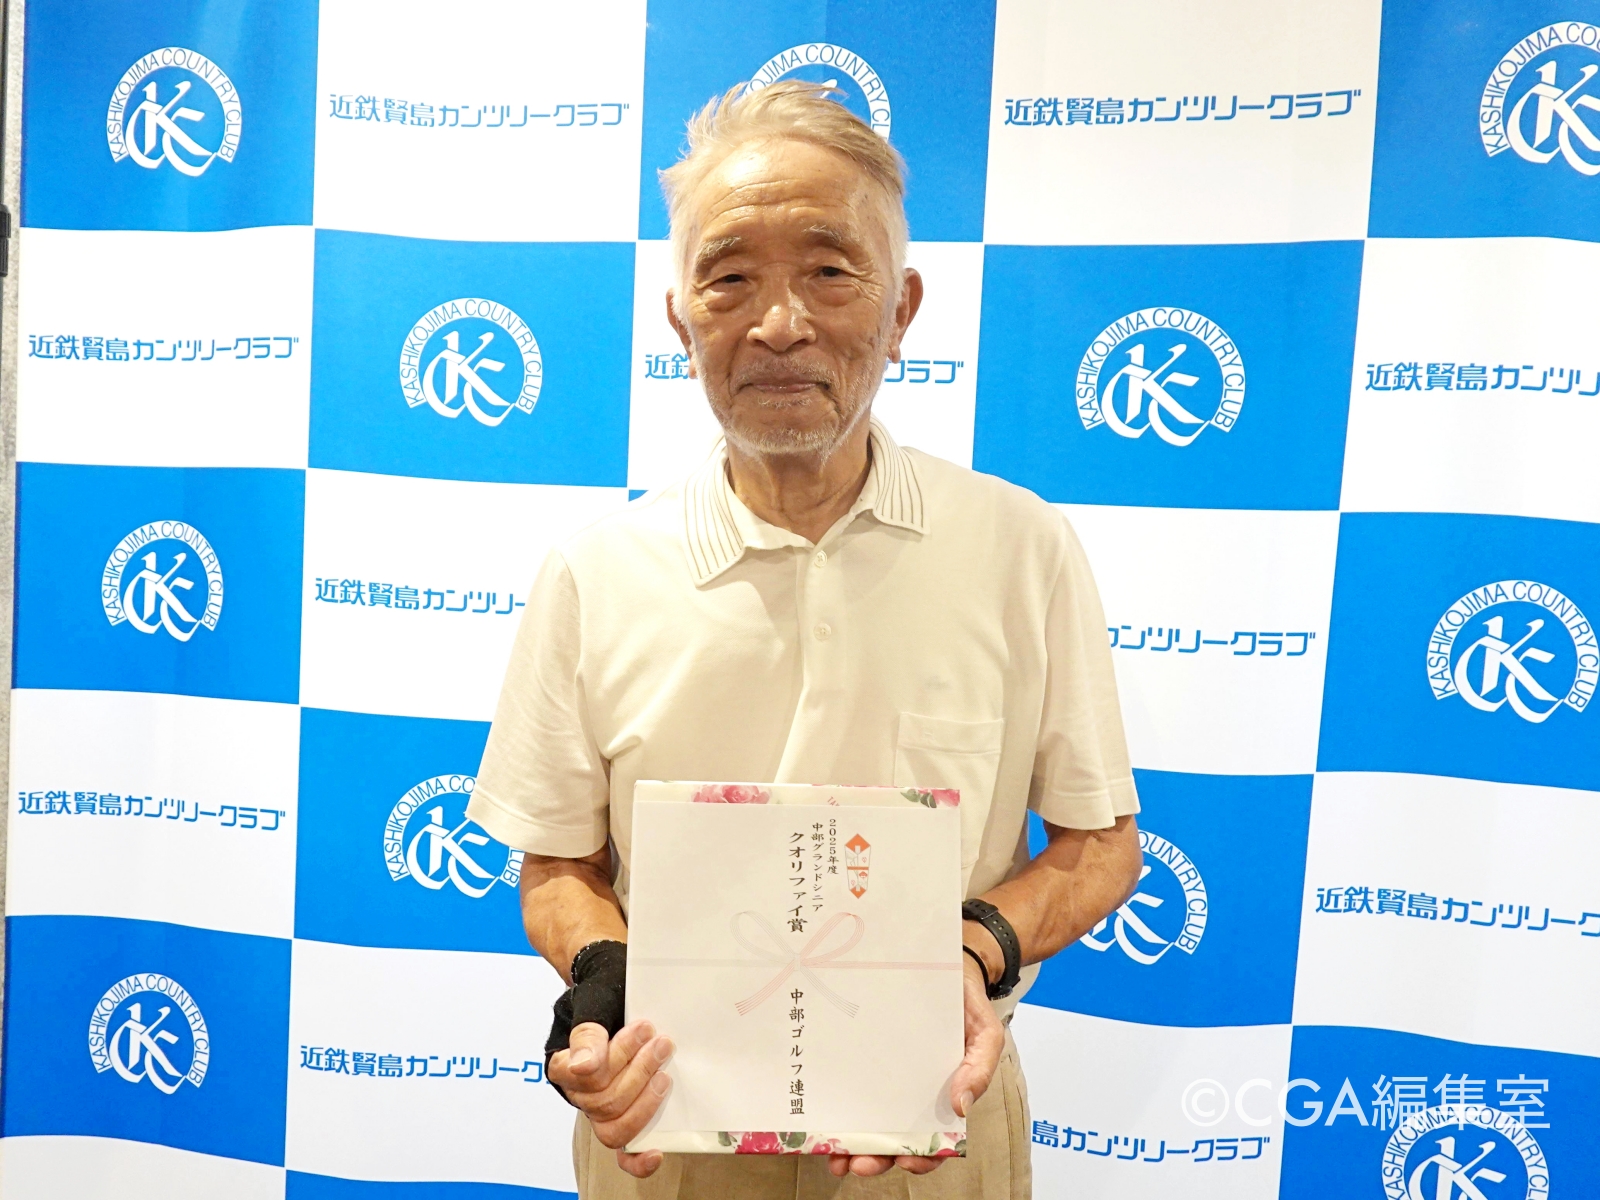 KASHIKOJIMA COUNTRY CLUB
近鉄賢島カンツリークラブ
JIMA COUNTRY
近鉄賢島カンツリークラブ
KASHIKOJIMA CO
近鉄賢島カンツリークラブ
KASHIKOJIMA COUNTRY CLUB
近鉄
クラブ
KASHIKOJIMA COUNTRY CLUB
近鉄賢島カンツリ
KASHIKOJIMA COUNTRY CLUB
近鉄賢島カンツリー
カンツリークラブ
KASHIKOJIMA COUNTRY CLUB
近鉄賢島カンツリークラブ
KASHIKOJIMA COU
近鉄賢島カンツリーク
KASHIKOJIMA COUNTRY CLUB
近鉄賢島カンツリーク
島カンツリークラブ
2025年度
中部グランドシニア
クオリファイ賞
中部ゴルフ連盟
©CGA編集室